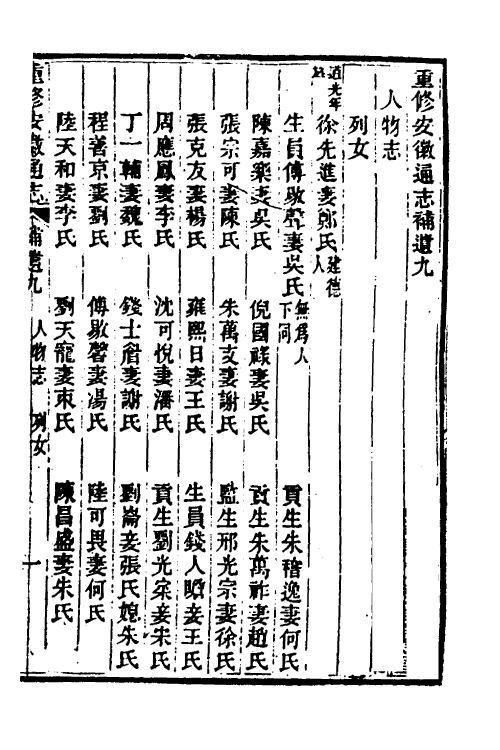 重修安徽通志補遺九
人物志
列女
道光年
徐先進妻鄭氏建德人
生員傅敭聲妻吳氏無爲人下同
貢生朱稽逸妻何氏
陳嘉樂妻吳氏
倪國祿妻吳氏
貢生朱萬祚妻趙氏
張宗可妻陳氏
朱萬支妻謝氏
監生邢光宗妻徐氏
張克友妻楊氏
雍熙日妻王氏
生員錢人妾王氏
周應鳳妻李氏
沈可悅妻潘氏
貢生劉光宗妾宋氏
丁一輔妻魏氏
錢士妻謝氏
劉崙妾張氏媳朱氏
程善京妻劉氏
傅敭馨妻湯氏
陸可畏妻何氏
陸天和妻李氏
劉天寵妻束氏
陳昌盛妻朱氏
重修安徽通志
補遺九
人物志
列女
一